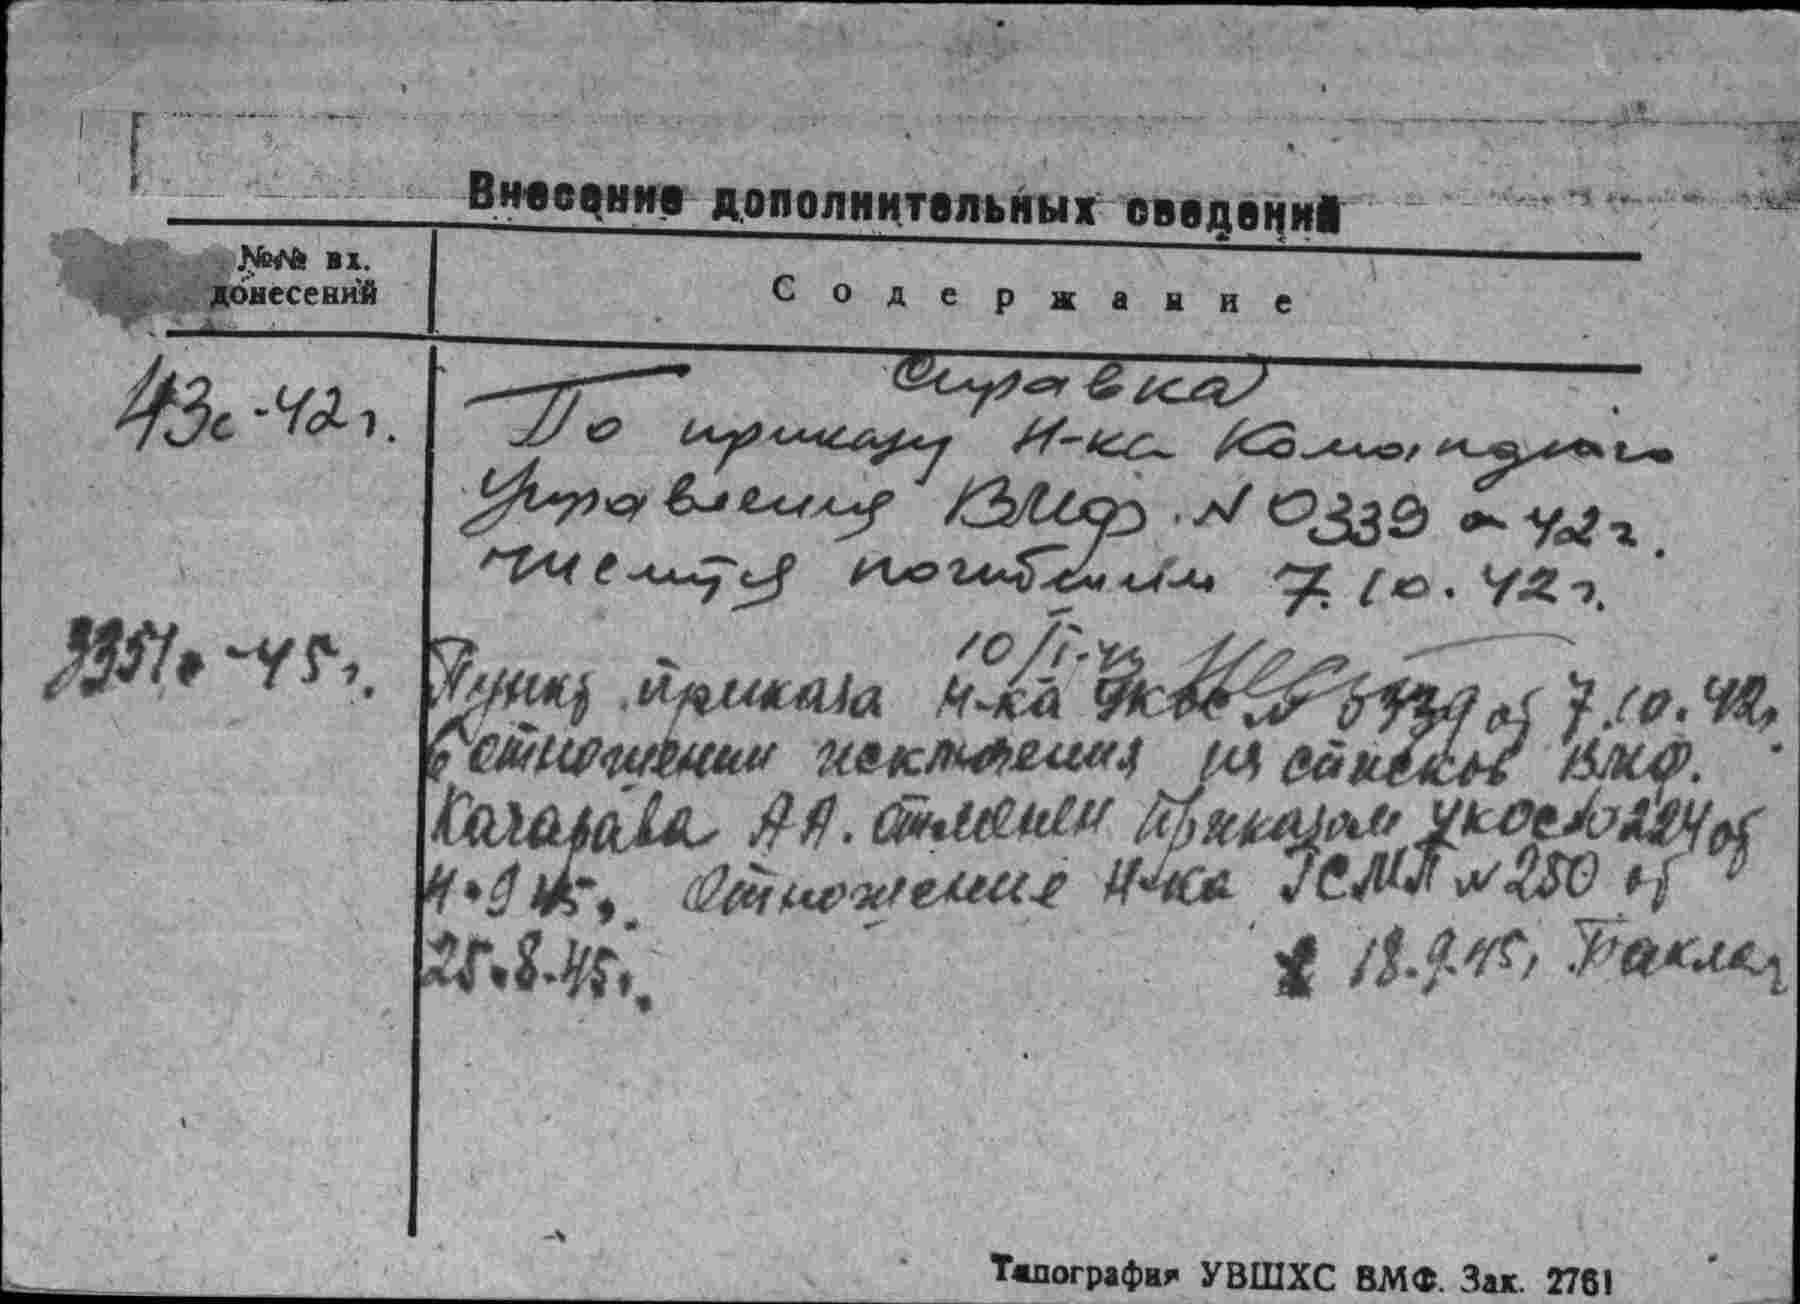 Внесение дополнительных сведений
№№ вх. донесений
Содержание
43с-42г.
Справка
По приказу Н-ка Командного
Управления ВМФ. N 0339 - 42г.
числится погибшим 7.10.42г.
3351с-45г.
10/I-43
Пункт приказа Н-ка УКОС № 0339 от 7.10.42г
в отношении исключения из списков ВМФ.
Качарава А А. отменен приказом УКОС №0224 от
4.9 45г. Отношение Н-ка ГСМП N 250 от
25.8.45г.
18.9.45г
Типография УВШХС ВМФ. Зак. 2761